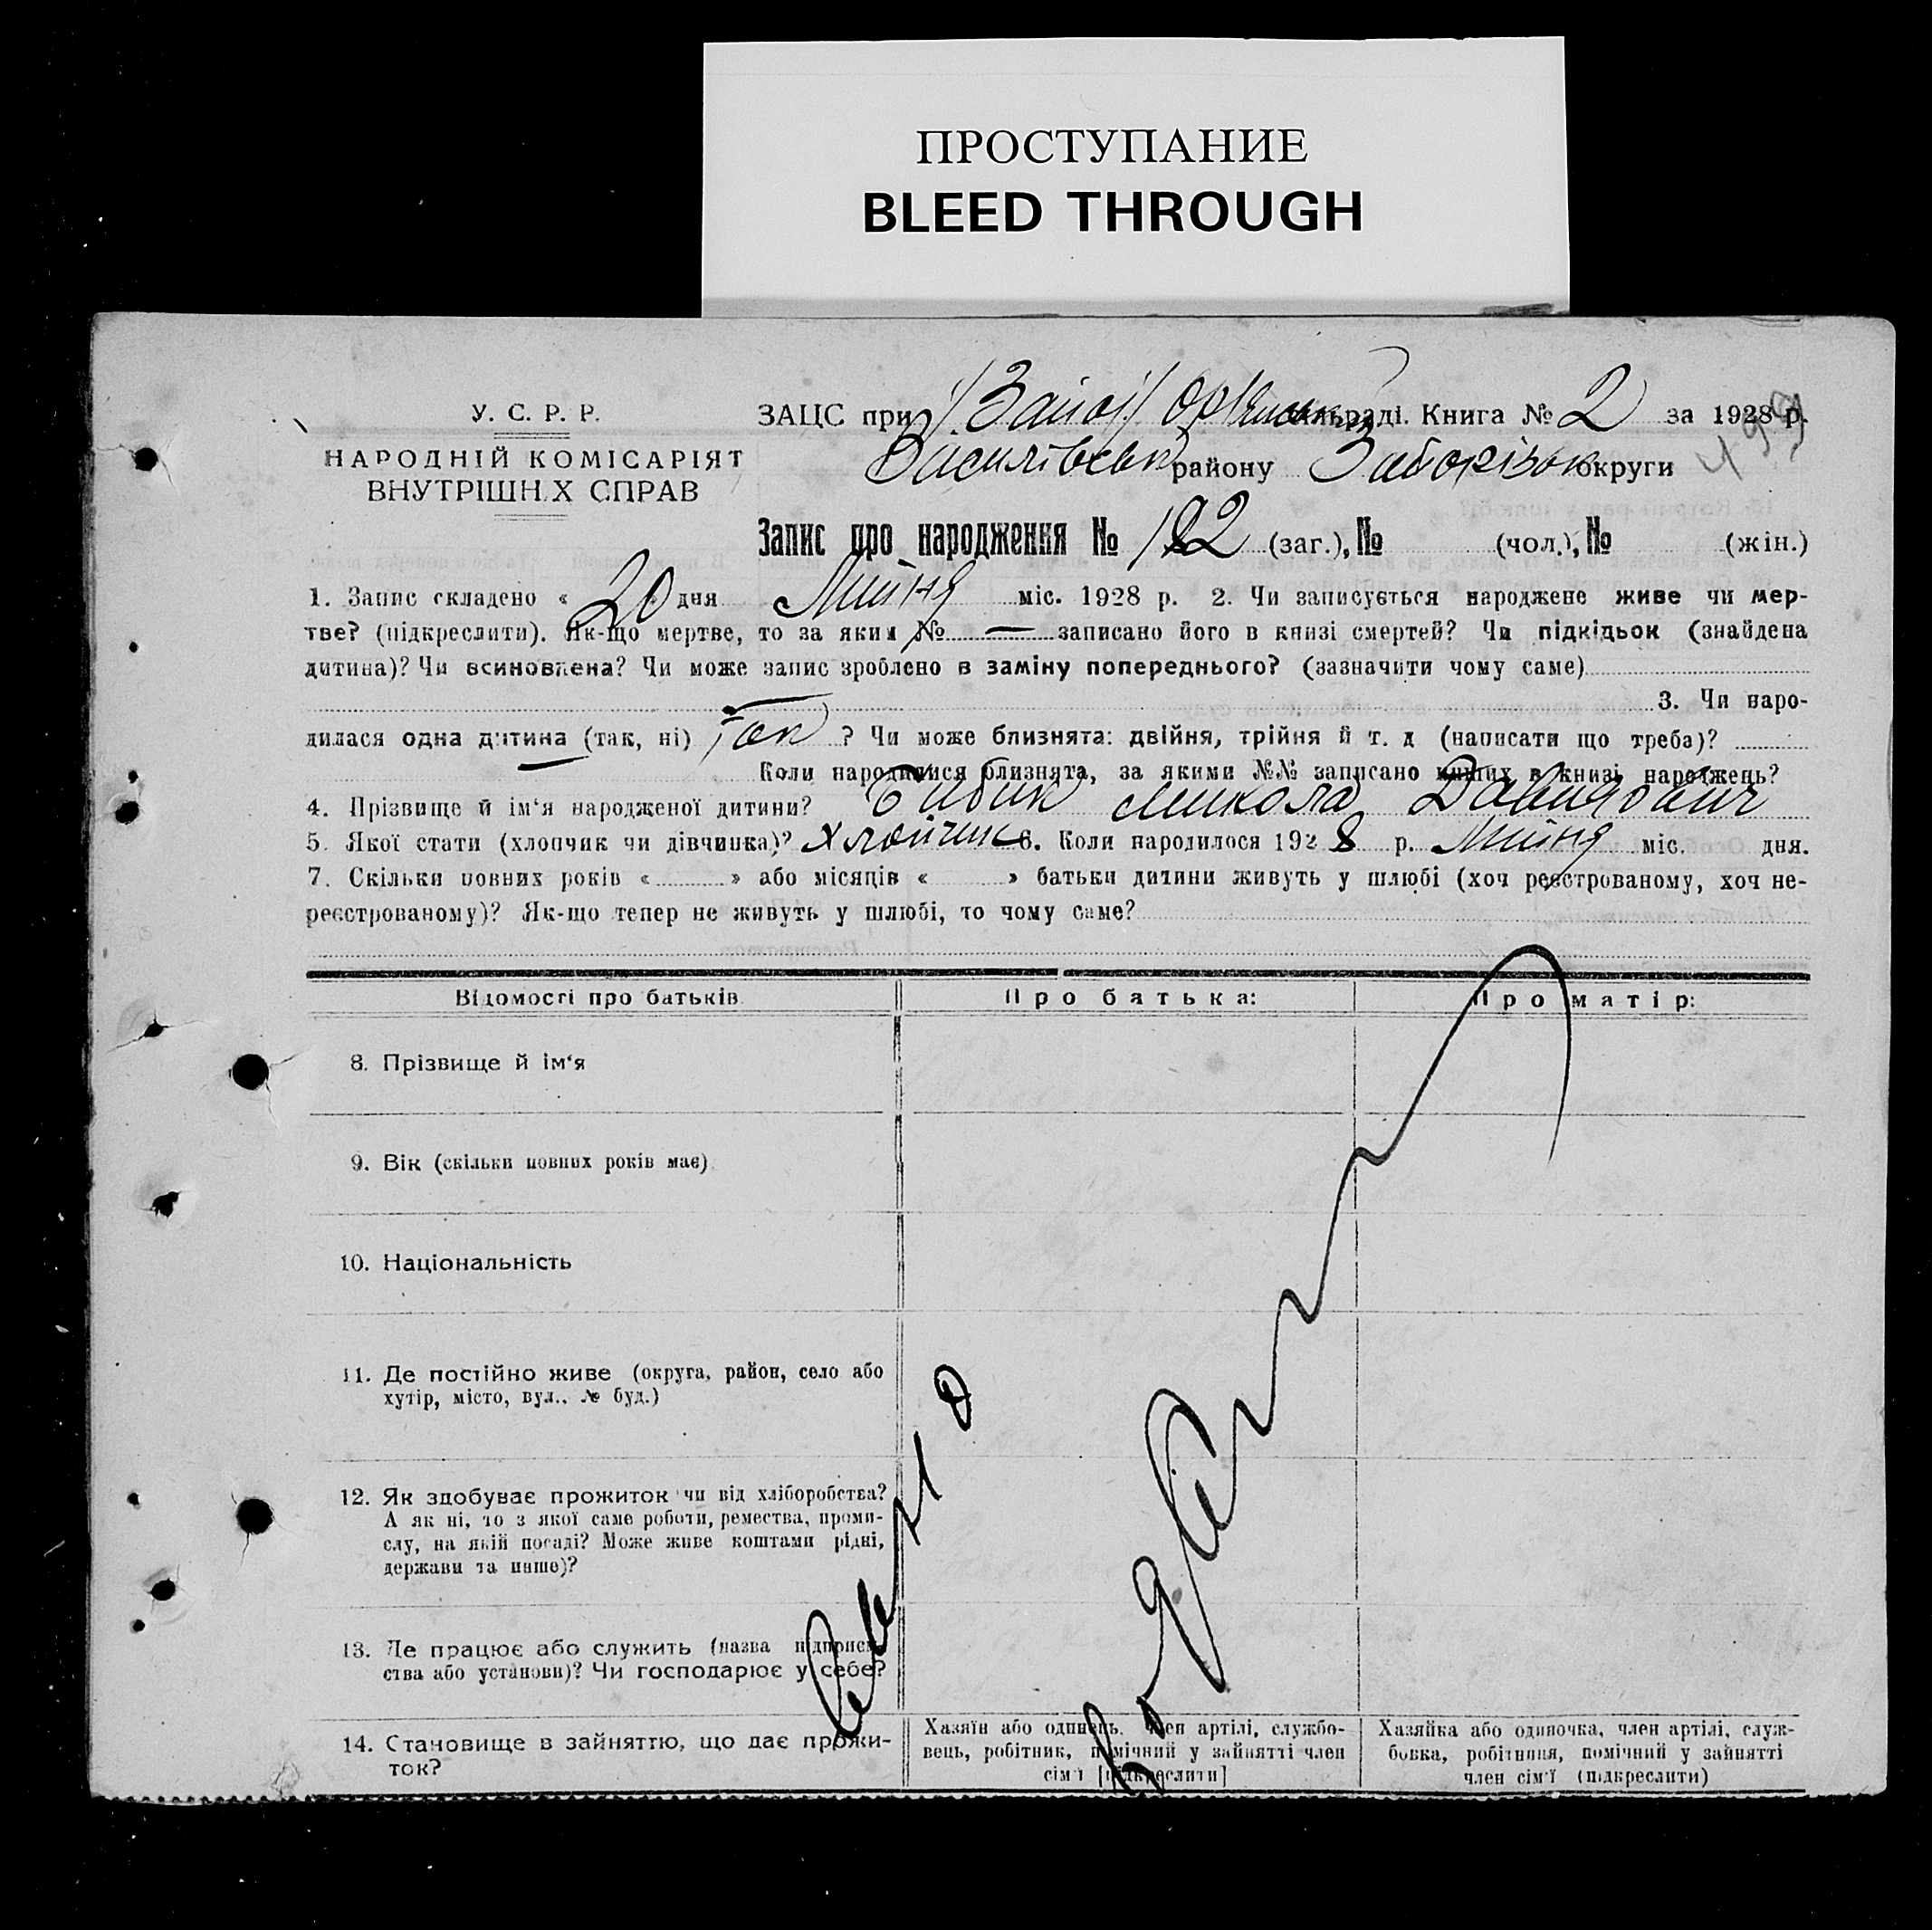 ПРОСТУПАНИЕ
BLEED THROUGH
У. С. Р. Р.
НАРОДНІЙ КОМІСАРІЯТ
ВНУТРІШНІХ СПРАВ
ЗАЦС при сільраді. Книга № 2 за 1928 р.
Василівськ району Запорізьк округи
Запис про народження № 192 (заг.), № (чол.), № (жін.)
1. Запис складено « 20 » дня Липня міс. 1928 р. 2. Чи записується народжене живе чи мер-
тве? (підкреслити). Як-що мертве, то за яким № — записано його в книзі смертей? Чи підкідьок (знайдена
дитина)? Чи всиновлена? Чи може запис зроблено в заміну попереднього? (зазначити чому саме)
3. Чи наро-
дилася одна дитина (так, ні) Так ? Чи може близнята: двійня, трійня й т. д (написати що треба)?
Коли народилися близнята, за якими №№ записано инших в книзі народжень?
4. Прізвище й ім'я народженої дитини? Бибик Микола Давидович
5. Якої стати (хлопчик чи дівчинка)? Хлопчик 6. Коли народилося 1928 р. Липня міс. дня.
7. Скільки повних років « » або місяців « » батьки дитини живуть у шлюбі (хоч реєстрованому, хоч не-
реєстрованому)? Як-що тепер не живуть у шлюбі, то чому саме?
Відомості про батьків
Про батька:
Про матір:
8. Прізвище й ім'я
9. Вік (скільки повних років має)
10. Національність
11. Де постійно живе (округа, район, село або
хутір, місто, вул., № буд.)
12. Як здобуває прожиток чи від хліборобства?
А як ні, то з якої саме роботи, ремества, проми-
слу, на якій посаді? Може живе коштами рідні,
держави та инше)?
13. Де працює або служить (назва підприєм-
ства або установи)? Чи господарює у себе?
14. Становище в зайняттю, що дає прожи-
ток?
Хазяїн або одинець, член артілі, службо-
вець, робітник, помічний у зайнятті член
сім'ї [підкреслити]
Хазяйка або одиночка, член артілі, служ-
бовка, робітниця, помічний у зайнятті
член сім'ї (підкреслити)